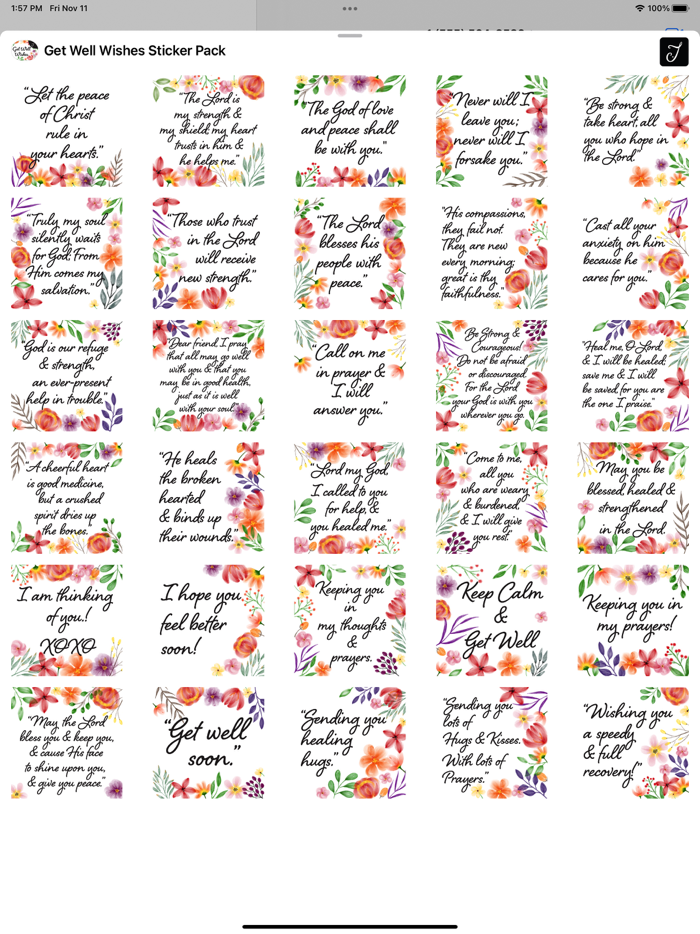 1:57 PM Fri Nov 11
100%
Get Well Wishes Sticker Pack
"Let the peace
of Christ
rule in
your hearts."
"The Lord is
my strength &
my shield; my heart
trusts in him &
he helps me."
"The God of love
and peace shall
be with you."
"Never will I
leave you;
never will I
forsake you."
"Be strong &
take heart, all
you who hope in
the Lord"
"Truly my soul
silently waits
for God; from
Him comes my
salvation."
"Those who trust
in the Lord
will receive
new strength."
"The Lord
blesses his
people with
peace."
"His compassions,
they fail not.
They are new
every morning;
great is thy
faithfulness."
"Cast all your
anxiety on him
because he
cares for you."
"God is our refuge
& strength,
an ever-present
help in trouble."
"Dear friend, I pray
that all may go well
with you & that you
may be in good health,
just as it is well
with your soul."
"Call on me
in prayer &
I will
answer you."
"Be Strong &
Courageous!
Do not be afraid
or discouraged.
For the Lord
your God is with you
wherever you go.
"Heal me, O Lord
& I will be healed;
save me & I will
be saved, for you are
the one I praise."
"A cheerful heart
is good medicine,
but a crushed
spirit dries up
the bones."
"He heals
the broken
hearted
& binds up
their wounds."
"Lord my God,
I called to you
for help, &
you healed me."
"Come to me,
all you
who are weary
& burdened,
& I will give
you rest.
May you be
blessed, healed &
strengthened
in the Lord.
I am thinking
of you.!
XOXO
I hope you
feel better
soon!
Keeping you
in
my thoughts
&
prayers.
Keep Calm
&
Get Well
Keeping you in
my prayers!
"May the Lord
bless you & keep you,
& cause His face
to shine upon you,
& give you peace."
"Get well
soon."
"Sending you
healing
hugs.
"Sending you
lots of
Hugs & Kisses.
With lots of
Prayers."
"Wishing you
a speedy
& full
recovery!"